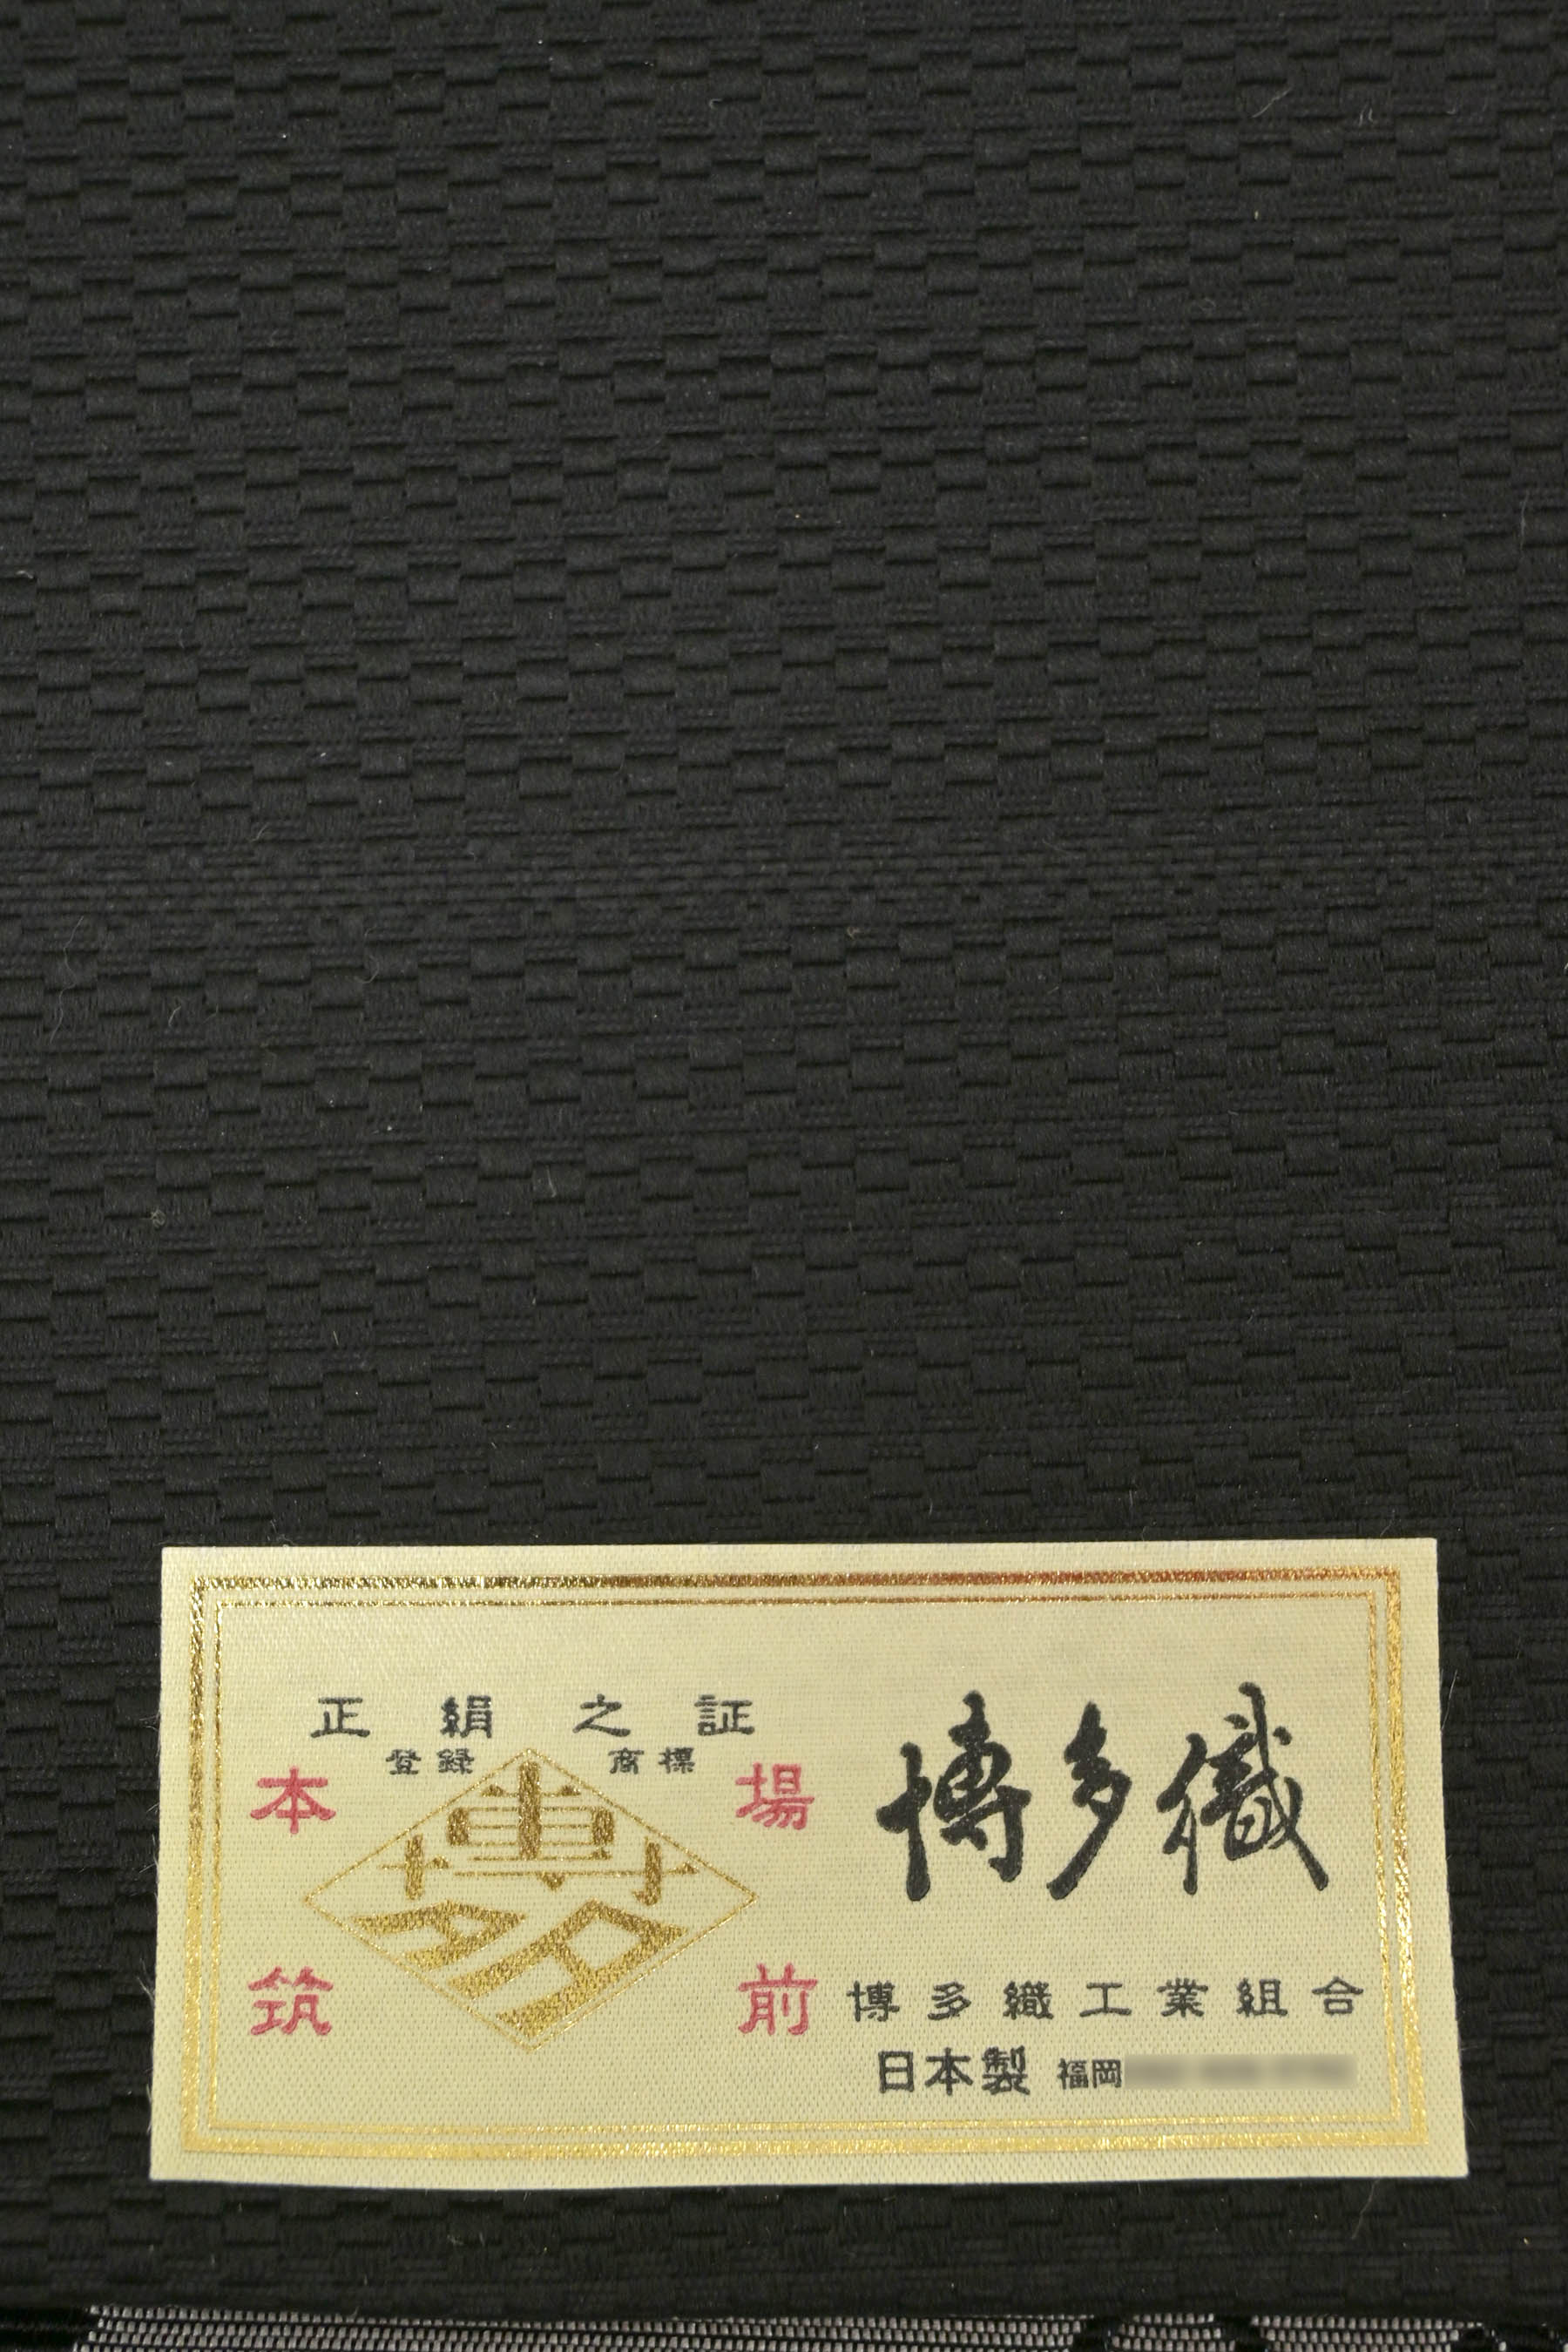 正絹之証
登録商標
本場
筑前
博多
博多織
博多織工業組合
日本製 福岡